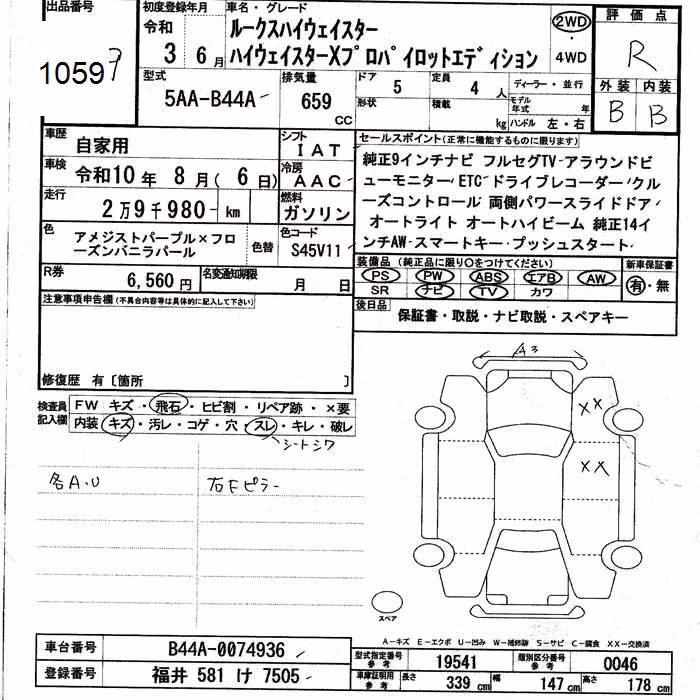 出品番号 初度登録年月 車名・グレード 評価点
令和 ルークスハイウェイスター 2WD
3年 6月 ハイウェイスターXプロパイロットエディション 4WD R
10597
型式 排気量 ドア 5 定員 4人 ディーラー・並行 外装 内装
5AA-B44A 659 cc 形状 積載 kg モデル年式 年 B B
ハンドル 左・右
車歴 自家用 シフト IAT セールスポイント(正常に機能するものに限ります)
車検 令和10年 8月( 6日) 冷房 AAC 純正9インチナビ フルセグTV アラウンドビ
走行 2万9千980 km 燃料 ガソリン ューモニター ETC ドライブレコーダー クル
ーズコントロール 両側パワースライドドア
色 アメジストパープル×フロ 色替 色コード オートライト オートハイビーム 純正14イ
ーズンバニラパール S45V11 ンチAW スマートキー プッシュスタート
R券 6,560円 名変通知期限 月 日 装備品(純正品に限り○をつけてください) 新車保証書
PS PW ABS エアB AW 有・無
SR ナビ TV カワ
注意事項申告欄(不具合内容等は具体的に記入して下さい) 後日品 保証書・取説・ナビ取説・スペアキー
修復歴 有〔箇所 〕
検査員 FW キズ・飛石・ヒビ割・リペア跡・×要
記入欄 内装 キズ・汚レ・コゲ・穴・スレ・キレ・破レ
シートシワ
各A.U 右Fピラー
A3
XX
XX
スペア
A-キズ E-エクボ U-凹み W-補修跡 S-サビ C-腐食 XX-交換済
車台番号 B44A-0074936 型式指定番号 参考 19541 類別区分番号 参考 0046
登録番号 福井 581 け 7505 車庫証明用 参考 長さ 339cm 幅 147cm 高さ 178cm